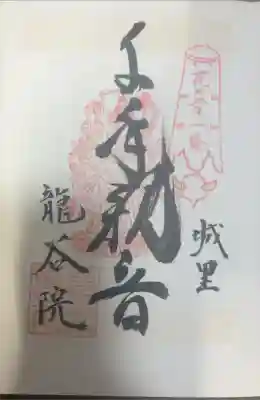 城里
千手観音
龍谷院